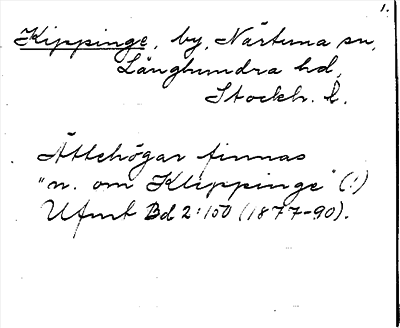 1.
Kippinge, by, Närtuna sn,
Långhundra hd,
Stockh. l.
Ättehögar finnas
"n. om Klippinge" (!)
Ufmt Bd 2:100 (1877-90).